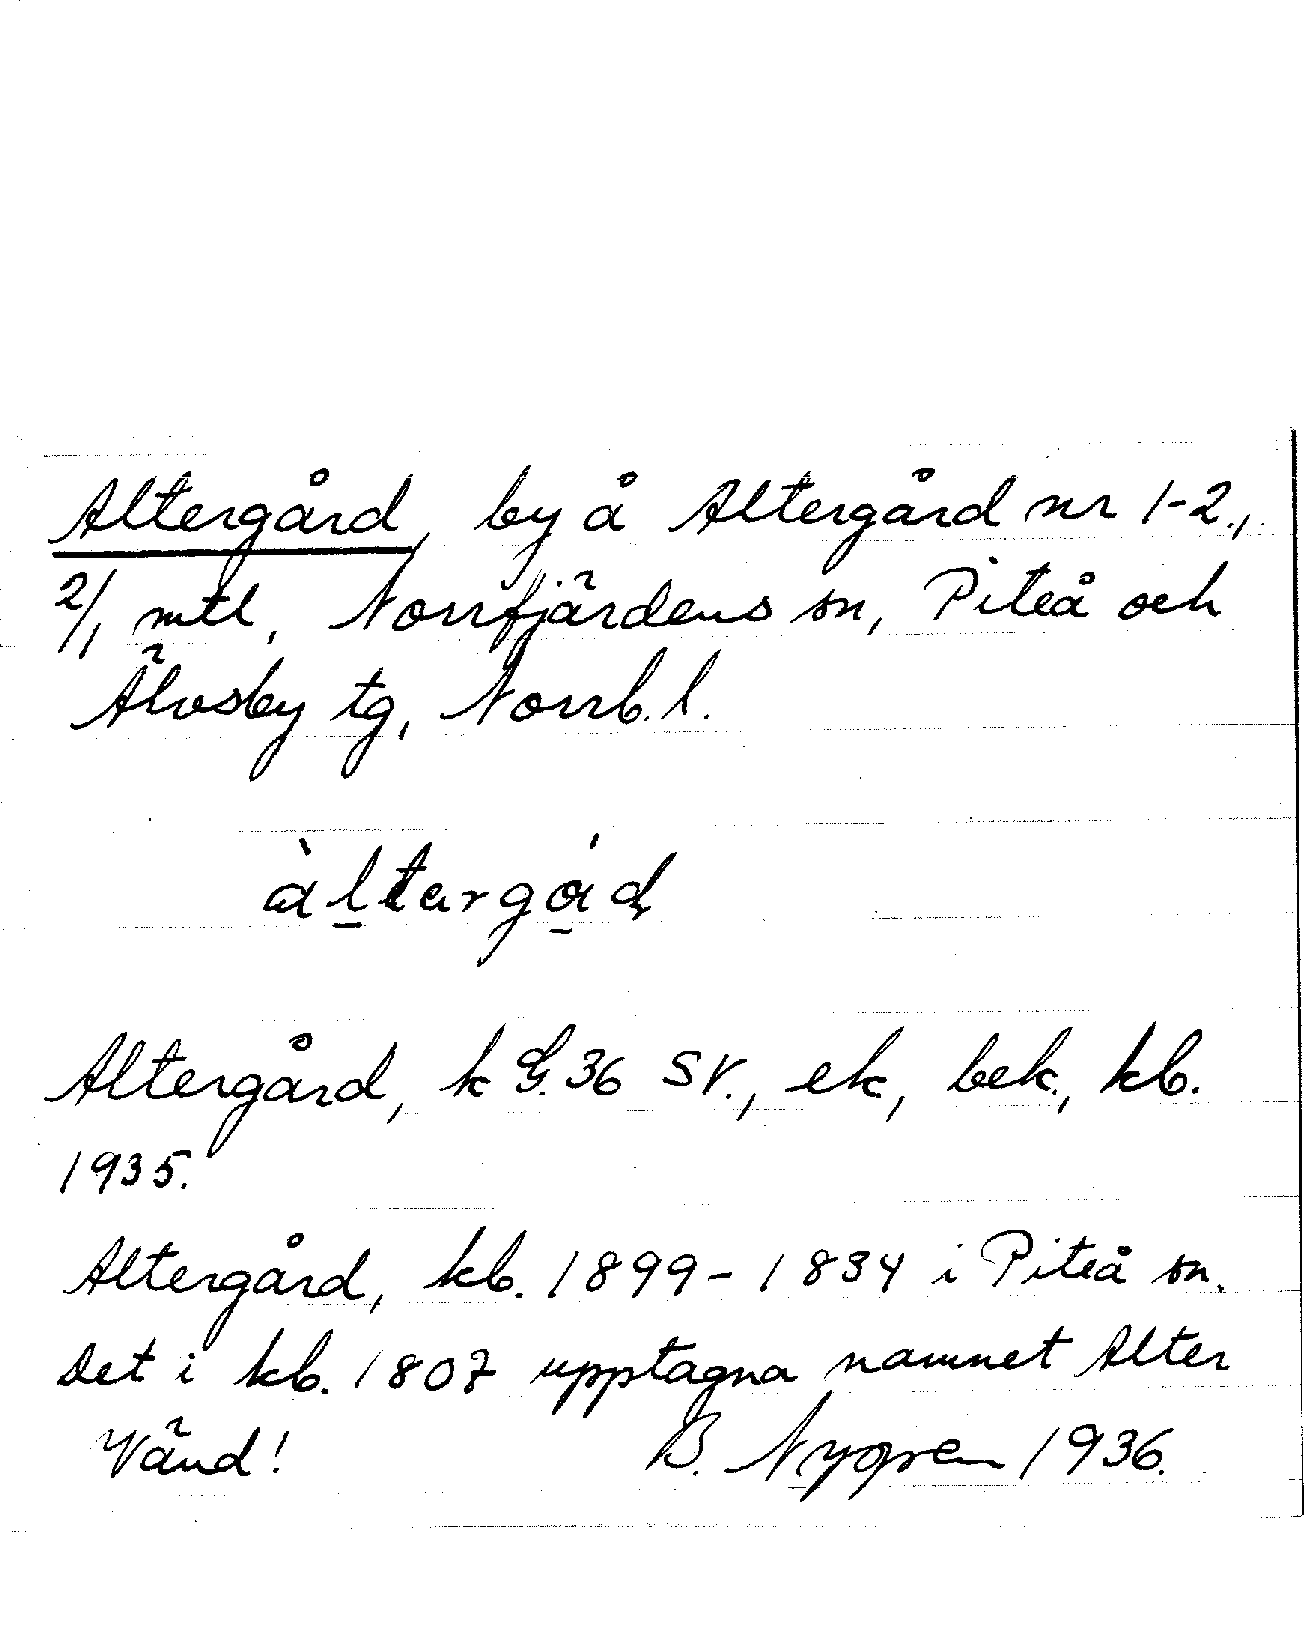 Altergård, by å Altergård nr 1-2.,
2/1 mtl, Norrfjärdens sn, Piteå och
Älvsby tg, Norrb. l.
àltargá̊d
Altergård, k G. 36 SV., ek, bek., kb.
1935.
Altergård, kb. 1899-1834 i Piteå sn.
Det i kb. 1807 upptagna namnet Alter
Vänd! B. Nygren 1936.